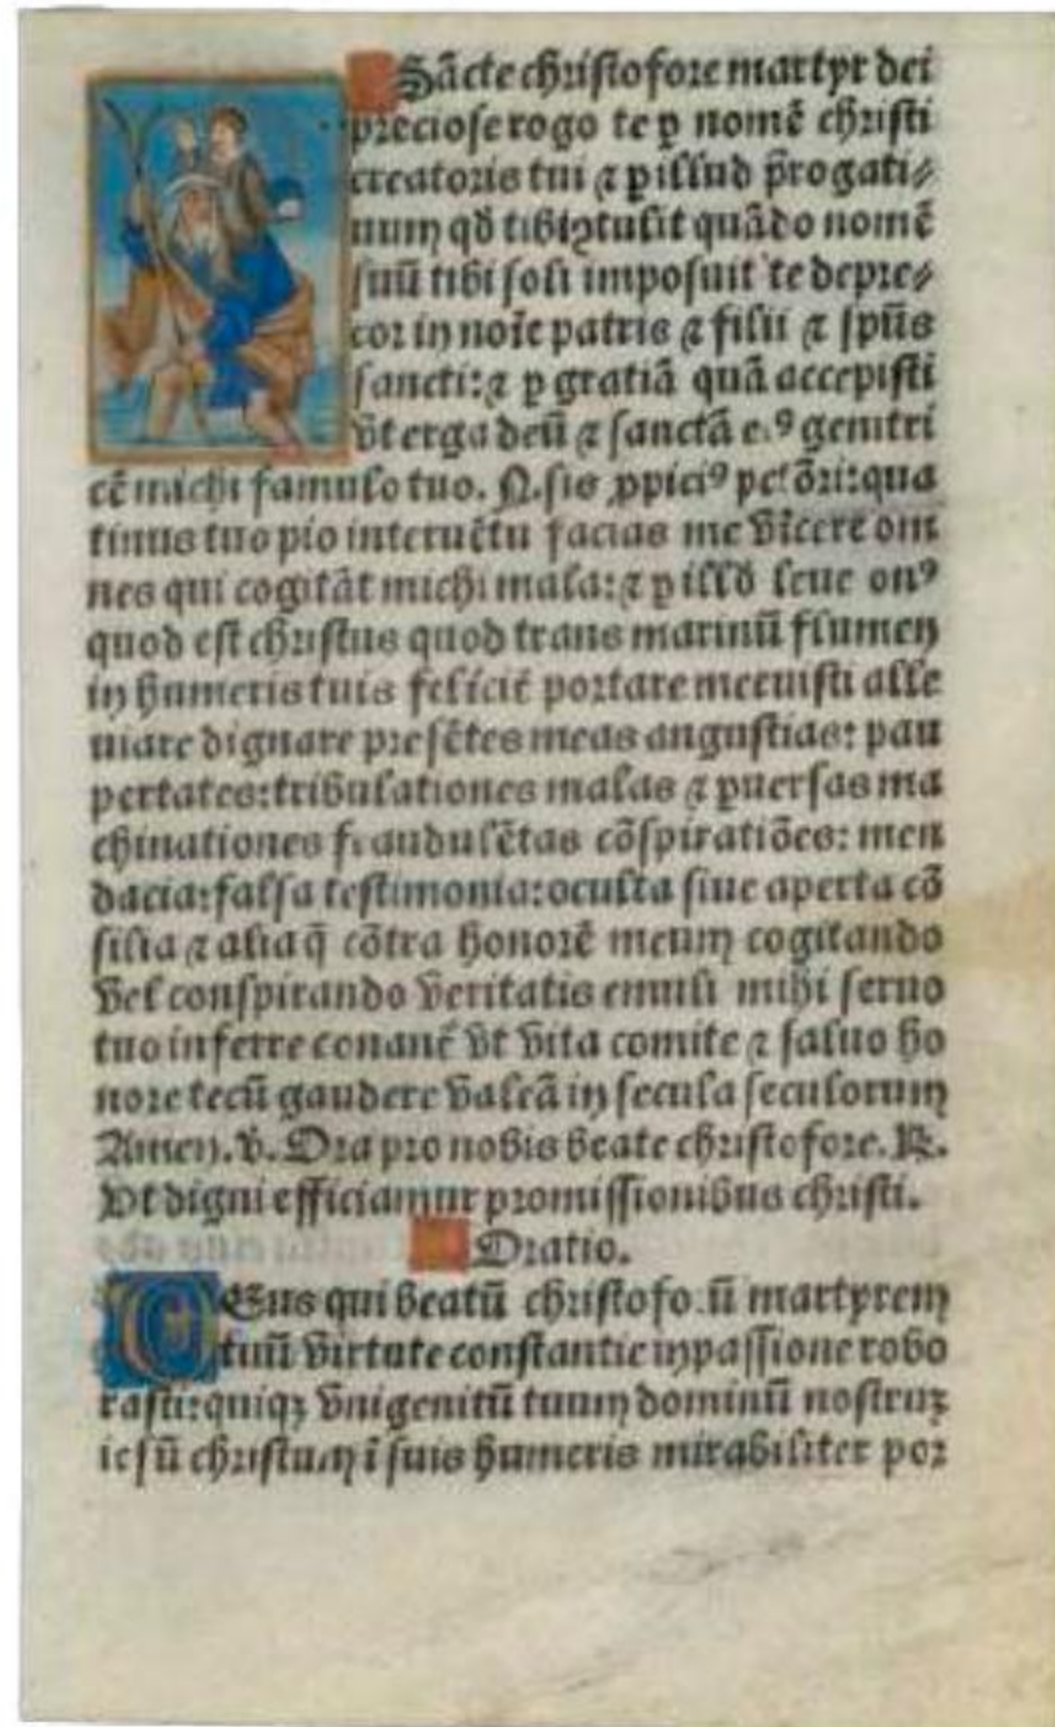 Sācte christofore martyr dei
preciose rogo te ꝑ nomē christi
creatoris tui ⁊ ꝑ illud p̄rogati⸗
uum qd̄ tibi ꝯtulit quādo nomē
suū tibi soli imposuit te depre⸗
cor in noīe patris ⁊ filii ⁊ spūs
sancti:⁊ ꝑ gratiā quā accepisti
vt erga deū ⁊ sanctā eiꝰ genitri
cē michi famulo tuo. N. sis ꝓpiciꝰ pctōri:qua
tinus tuo pio interuētu facias me vīcere om
nes qui cogitāt michi mala:⁊ ꝑ illd̄ leue onꝰ
quod est christus quod trans marinū flumen
in humeris tuis felicit̄ portare meruisti alle
uiare dignare presētes meas angustias: pau
pertates:tribulationes malas ⁊ ꝑuersas ma
chinationes fraudulētas cōspiratiōes: men
dacia:falsa testimonia:oculta siue aperta cō
silia ⁊ alia q̄ cōtra honorē meum cogitando
vel conspirando veritatis emuli mihi seruo
tuo inferre conant̄ vt vita comite ⁊ saluo ho
nore tecū gaudere valeā in secula seculorum
Amen. ℣. Ora pro nobis beate christofore. ℟.
Vt digni efficiamur promissionibus christi.
Oratio.
DEus qui beatū christoforū martyrem
tuū virtute constantie in passione robo
rasti:quiqꝫ vnigenitū tuum dominū nostruꝫ
iesū christum ī suis humeris mirabiliter por